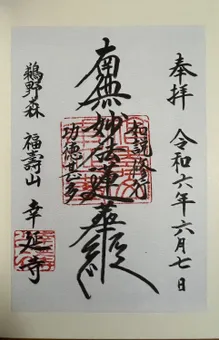 奉拝
令和六年六月七日
如説修行
南無妙法蓮華経
功徳甚多
鵜野森 福壽山 幸延寺